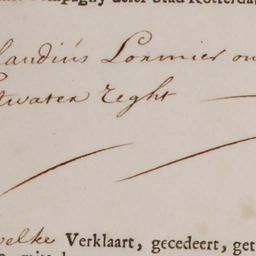 Compagny deser Stad Rotterda
laudiús Lormier
water Reght
welke Verklaart, gecedeert, get